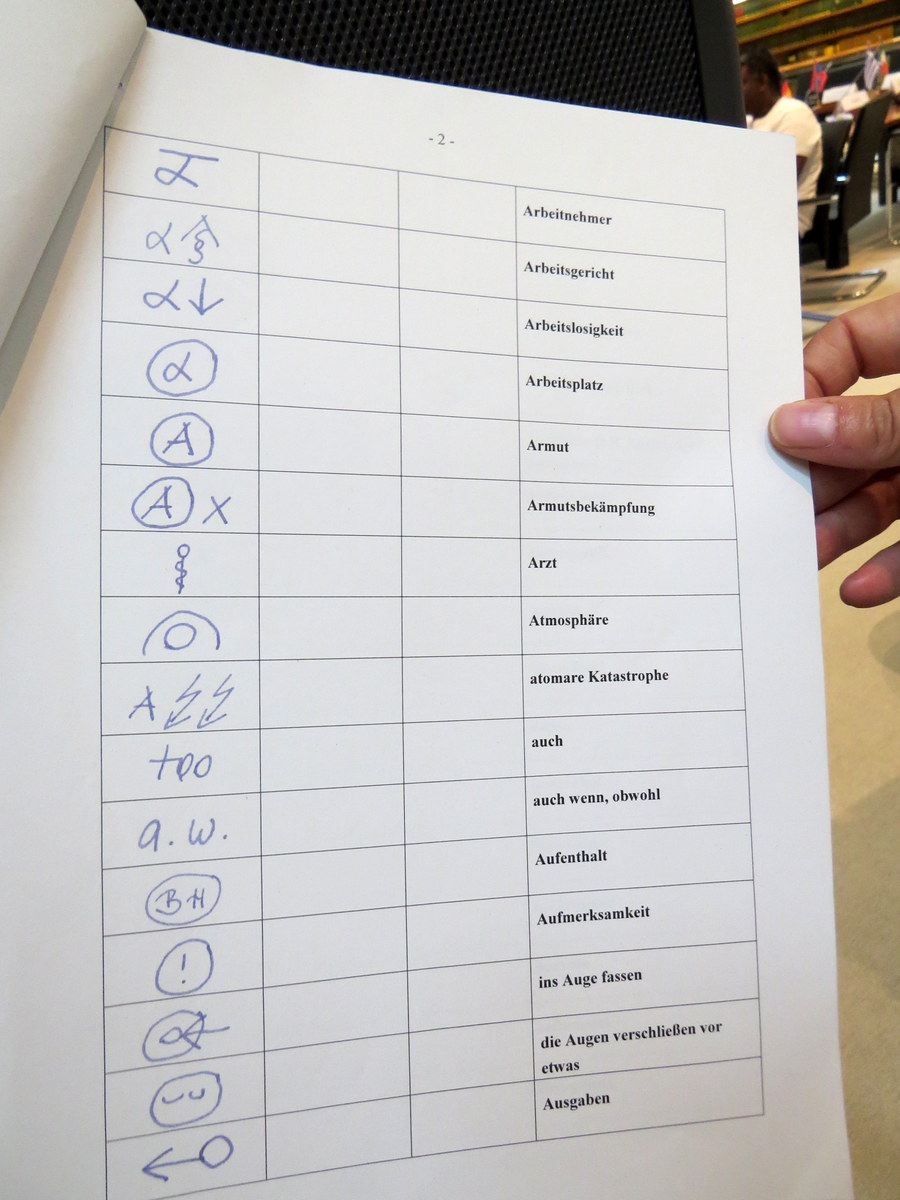 - 2 -
Arbeitnehmer
α Arbeitsgericht
α↓ Arbeitslosigkeit
α Arbeitsplatz
A Armut
A x Armutsbekämpfung
Arzt
Atmosphäre
A atomare Katastrophe
too auch
a.w. auch wenn, obwohl
BH Aufenthalt
! Aufmerksamkeit
ins Auge fassen
die Augen verschließen vor
etwas
← Ausgaben